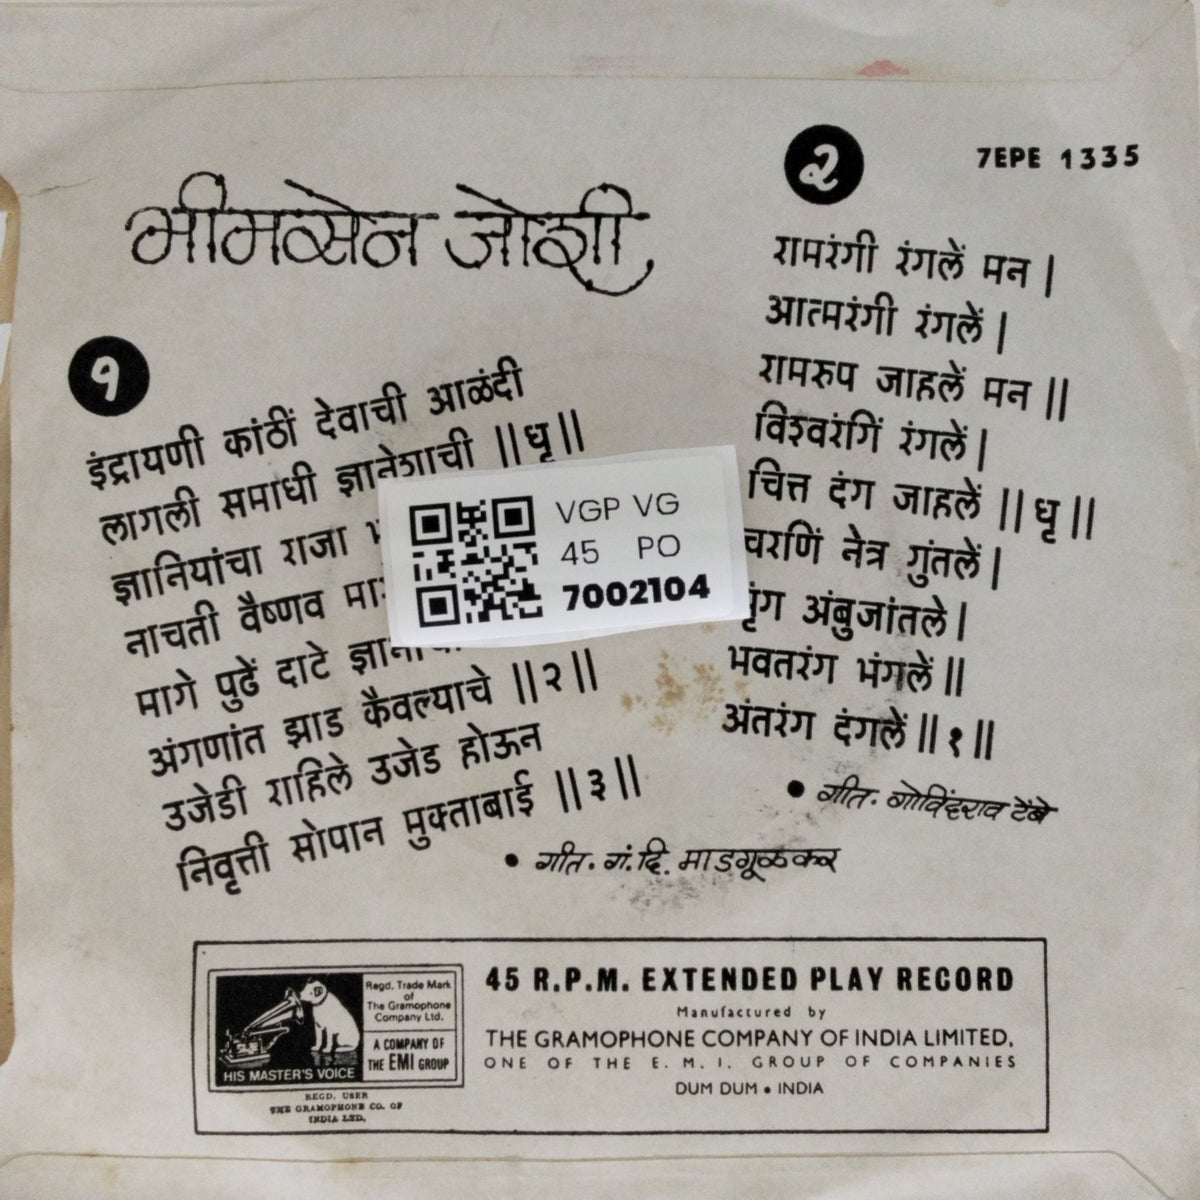 भीमसेन जोशी
१
इंद्रायणी कांठीं देवाची आळंदी
लागली समाधी ज्ञानेशाची ||धृ||
ज्ञानियांचा राजा
नाचती वैष्णव
मागे पुढें दाटे
अंगणांत झाड कैवल्याचे ||२||
उजेडी राहिले उजेड होऊन
निवृत्ती सोपान मुक्ताबाई ||३||
• गीत. ग.दि. माडगूळकर
२
7EPE 1335
रामरंगी रंगलें मन |
आत्मरंगी रंगलें |
रामरुप जाहलें मन ||
विश्वरंगिं रंगलें |
चित्त दंग जाहलें || धृ ||
चरणिं नेत्र गुंतलें |
अंबुजांतले |
भवतरंग भंगलें ||
अंतरंग दंगलें || १ ||
• गीत. गोविंदराव टेंबे
VGP VG
45 PO
7002104
HIS MASTER'S VOICE
Regd. Trade Mark
of
The Gramophone
Company Ltd.
A COMPANY OF
THE EMI GROUP
REGD. USER
THE GRAMOPHONE CO. OF
INDIA LTD.
45 R.P.M. EXTENDED PLAY RECORD
Manufactured by
THE GRAMOPHONE COMPANY OF INDIA LIMITED,
ONE OF THE E. M. I. GROUP OF COMPANIES
DUM DUM • INDIA